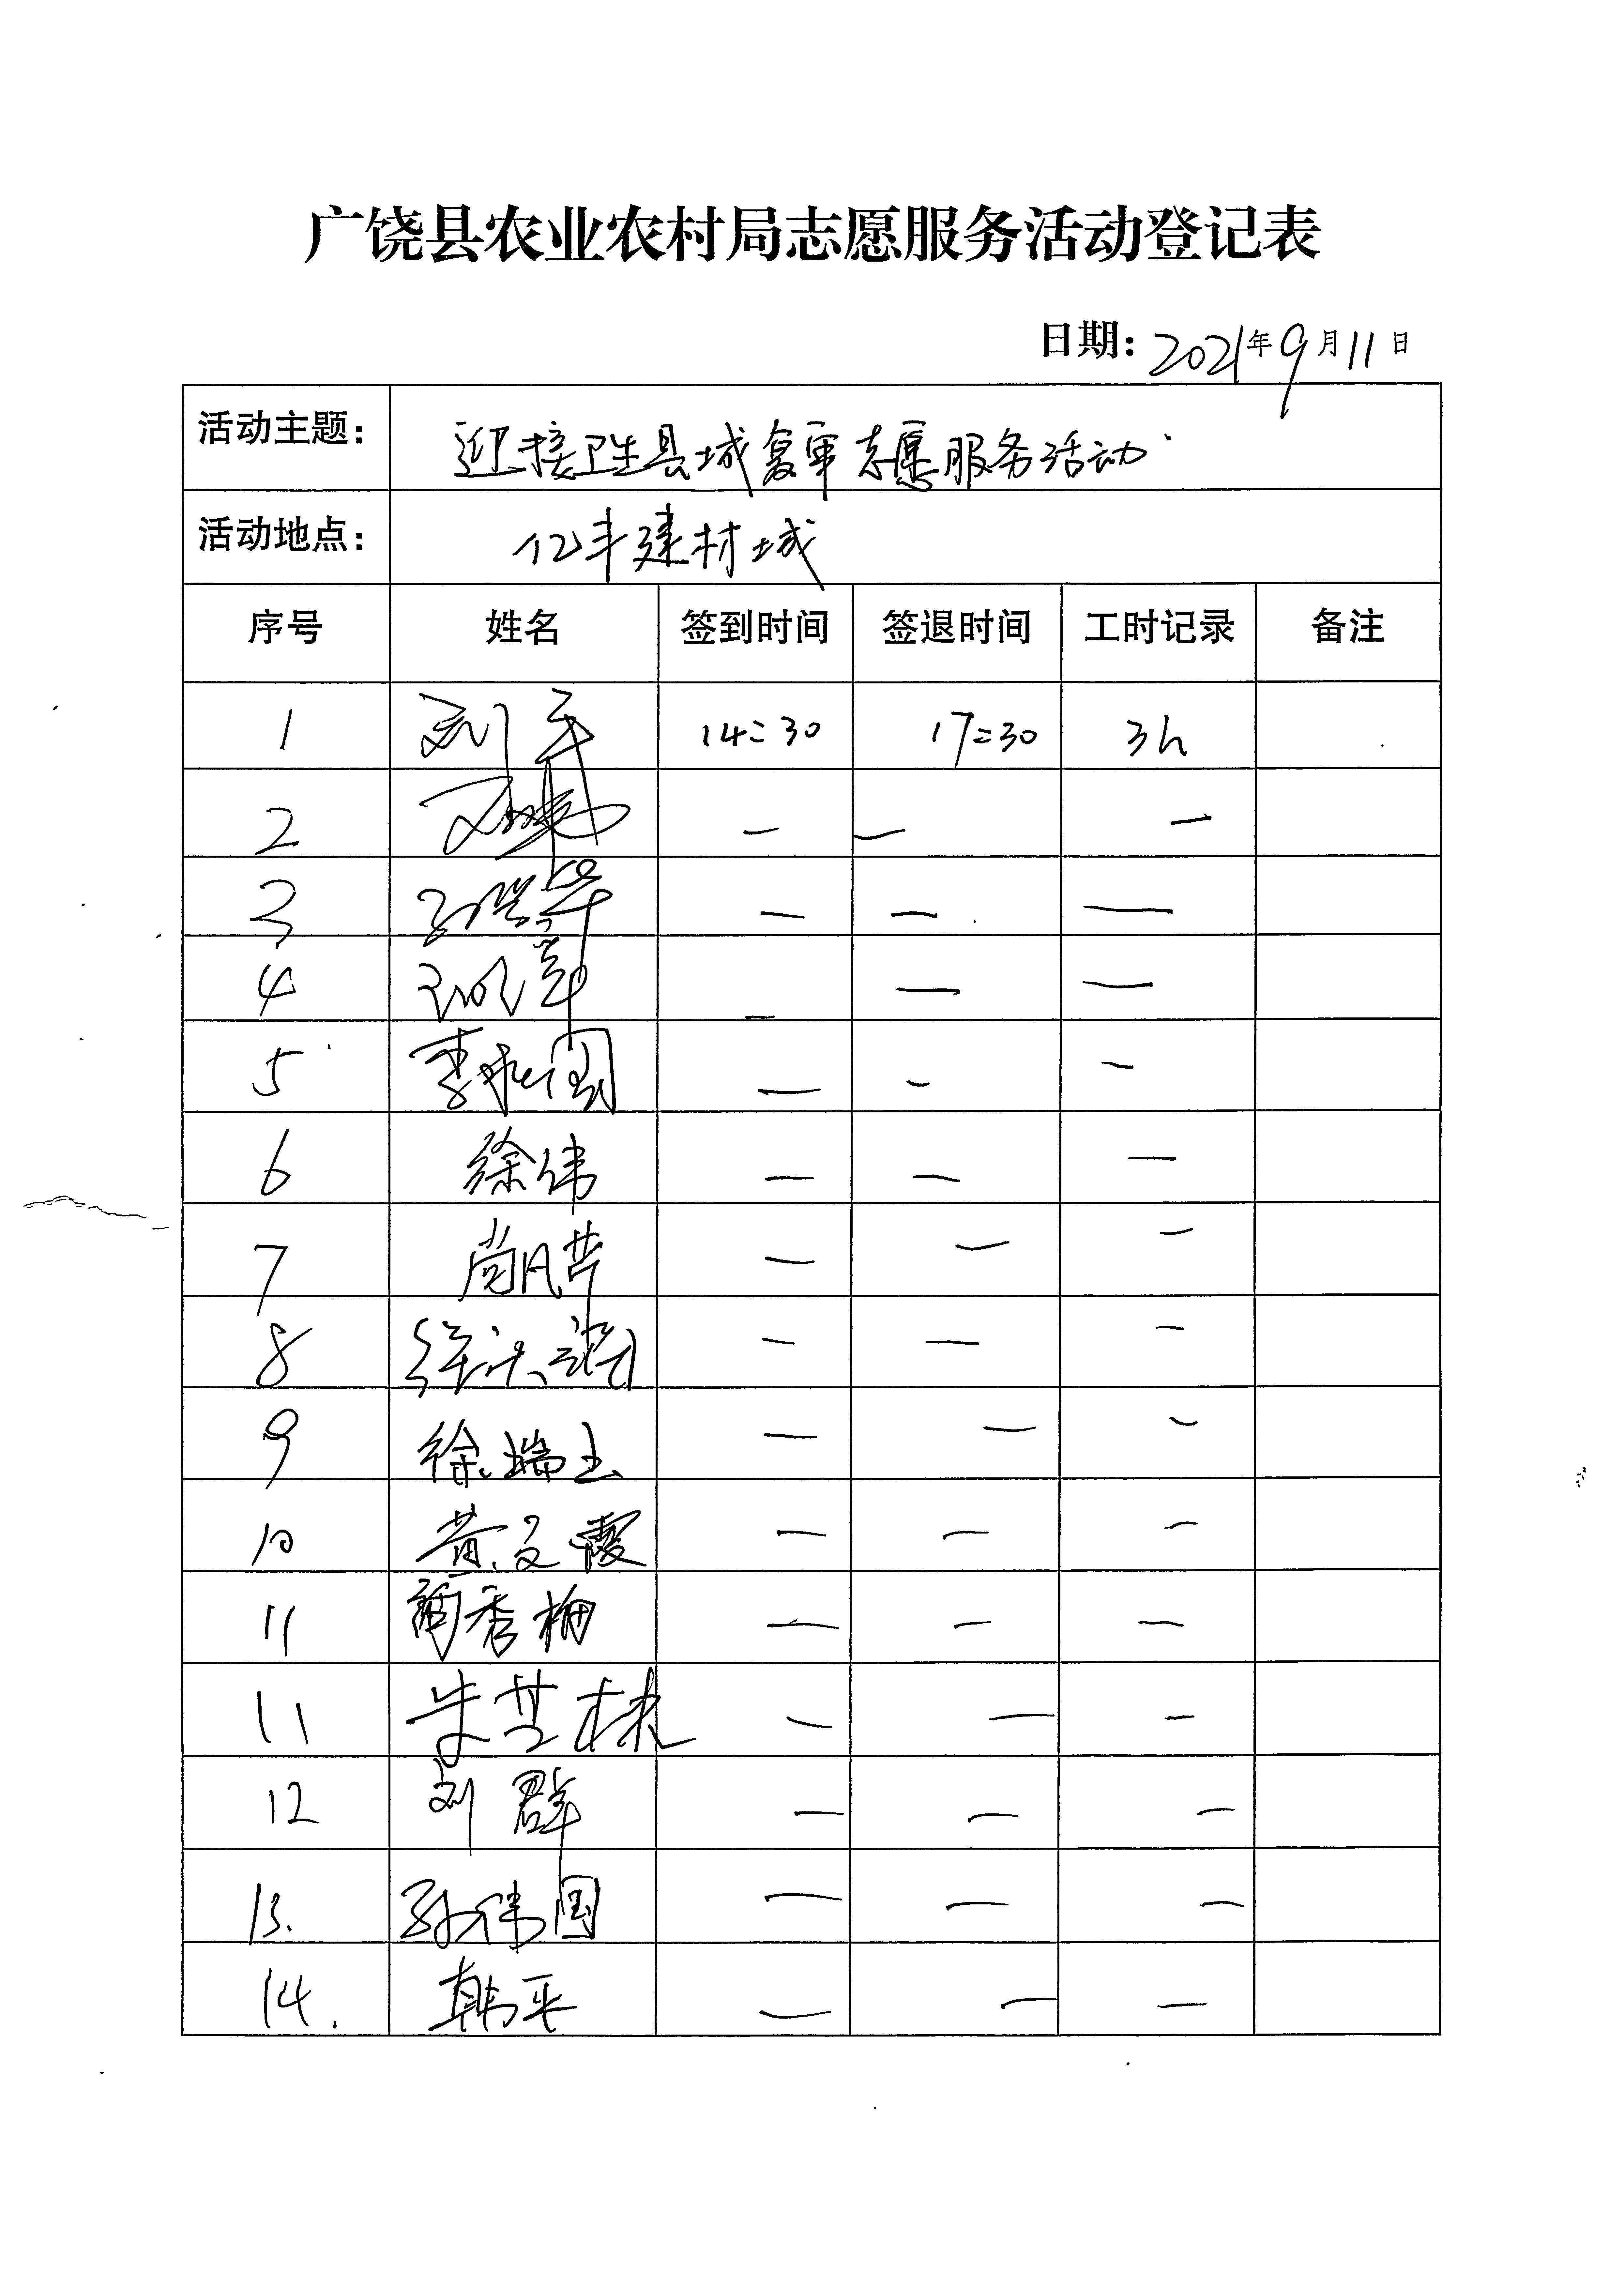 广饶县农业农村局志愿服务活动登记表
日期：2021年9月11日
活动主题： 迎接卫生县城复审志愿服务活动
活动地点： 亿丰建材城
序号 姓名 签到时间 签退时间 工时记录 备注
1 刘 14:30 17:30 3h
2 — — —
3 — — —
4 — — —
5 李 国 — — —
6 徐伟 — — —
7 尚 芹 — — —
8 — — —
9 徐瑞玉 — — —
10 黄文霞 — — —
11 秀梅 — — —
11 朱芝栋 — — —
12 刘群 — — —
13. 孙伟国 — — —
14. 韩平 — — —